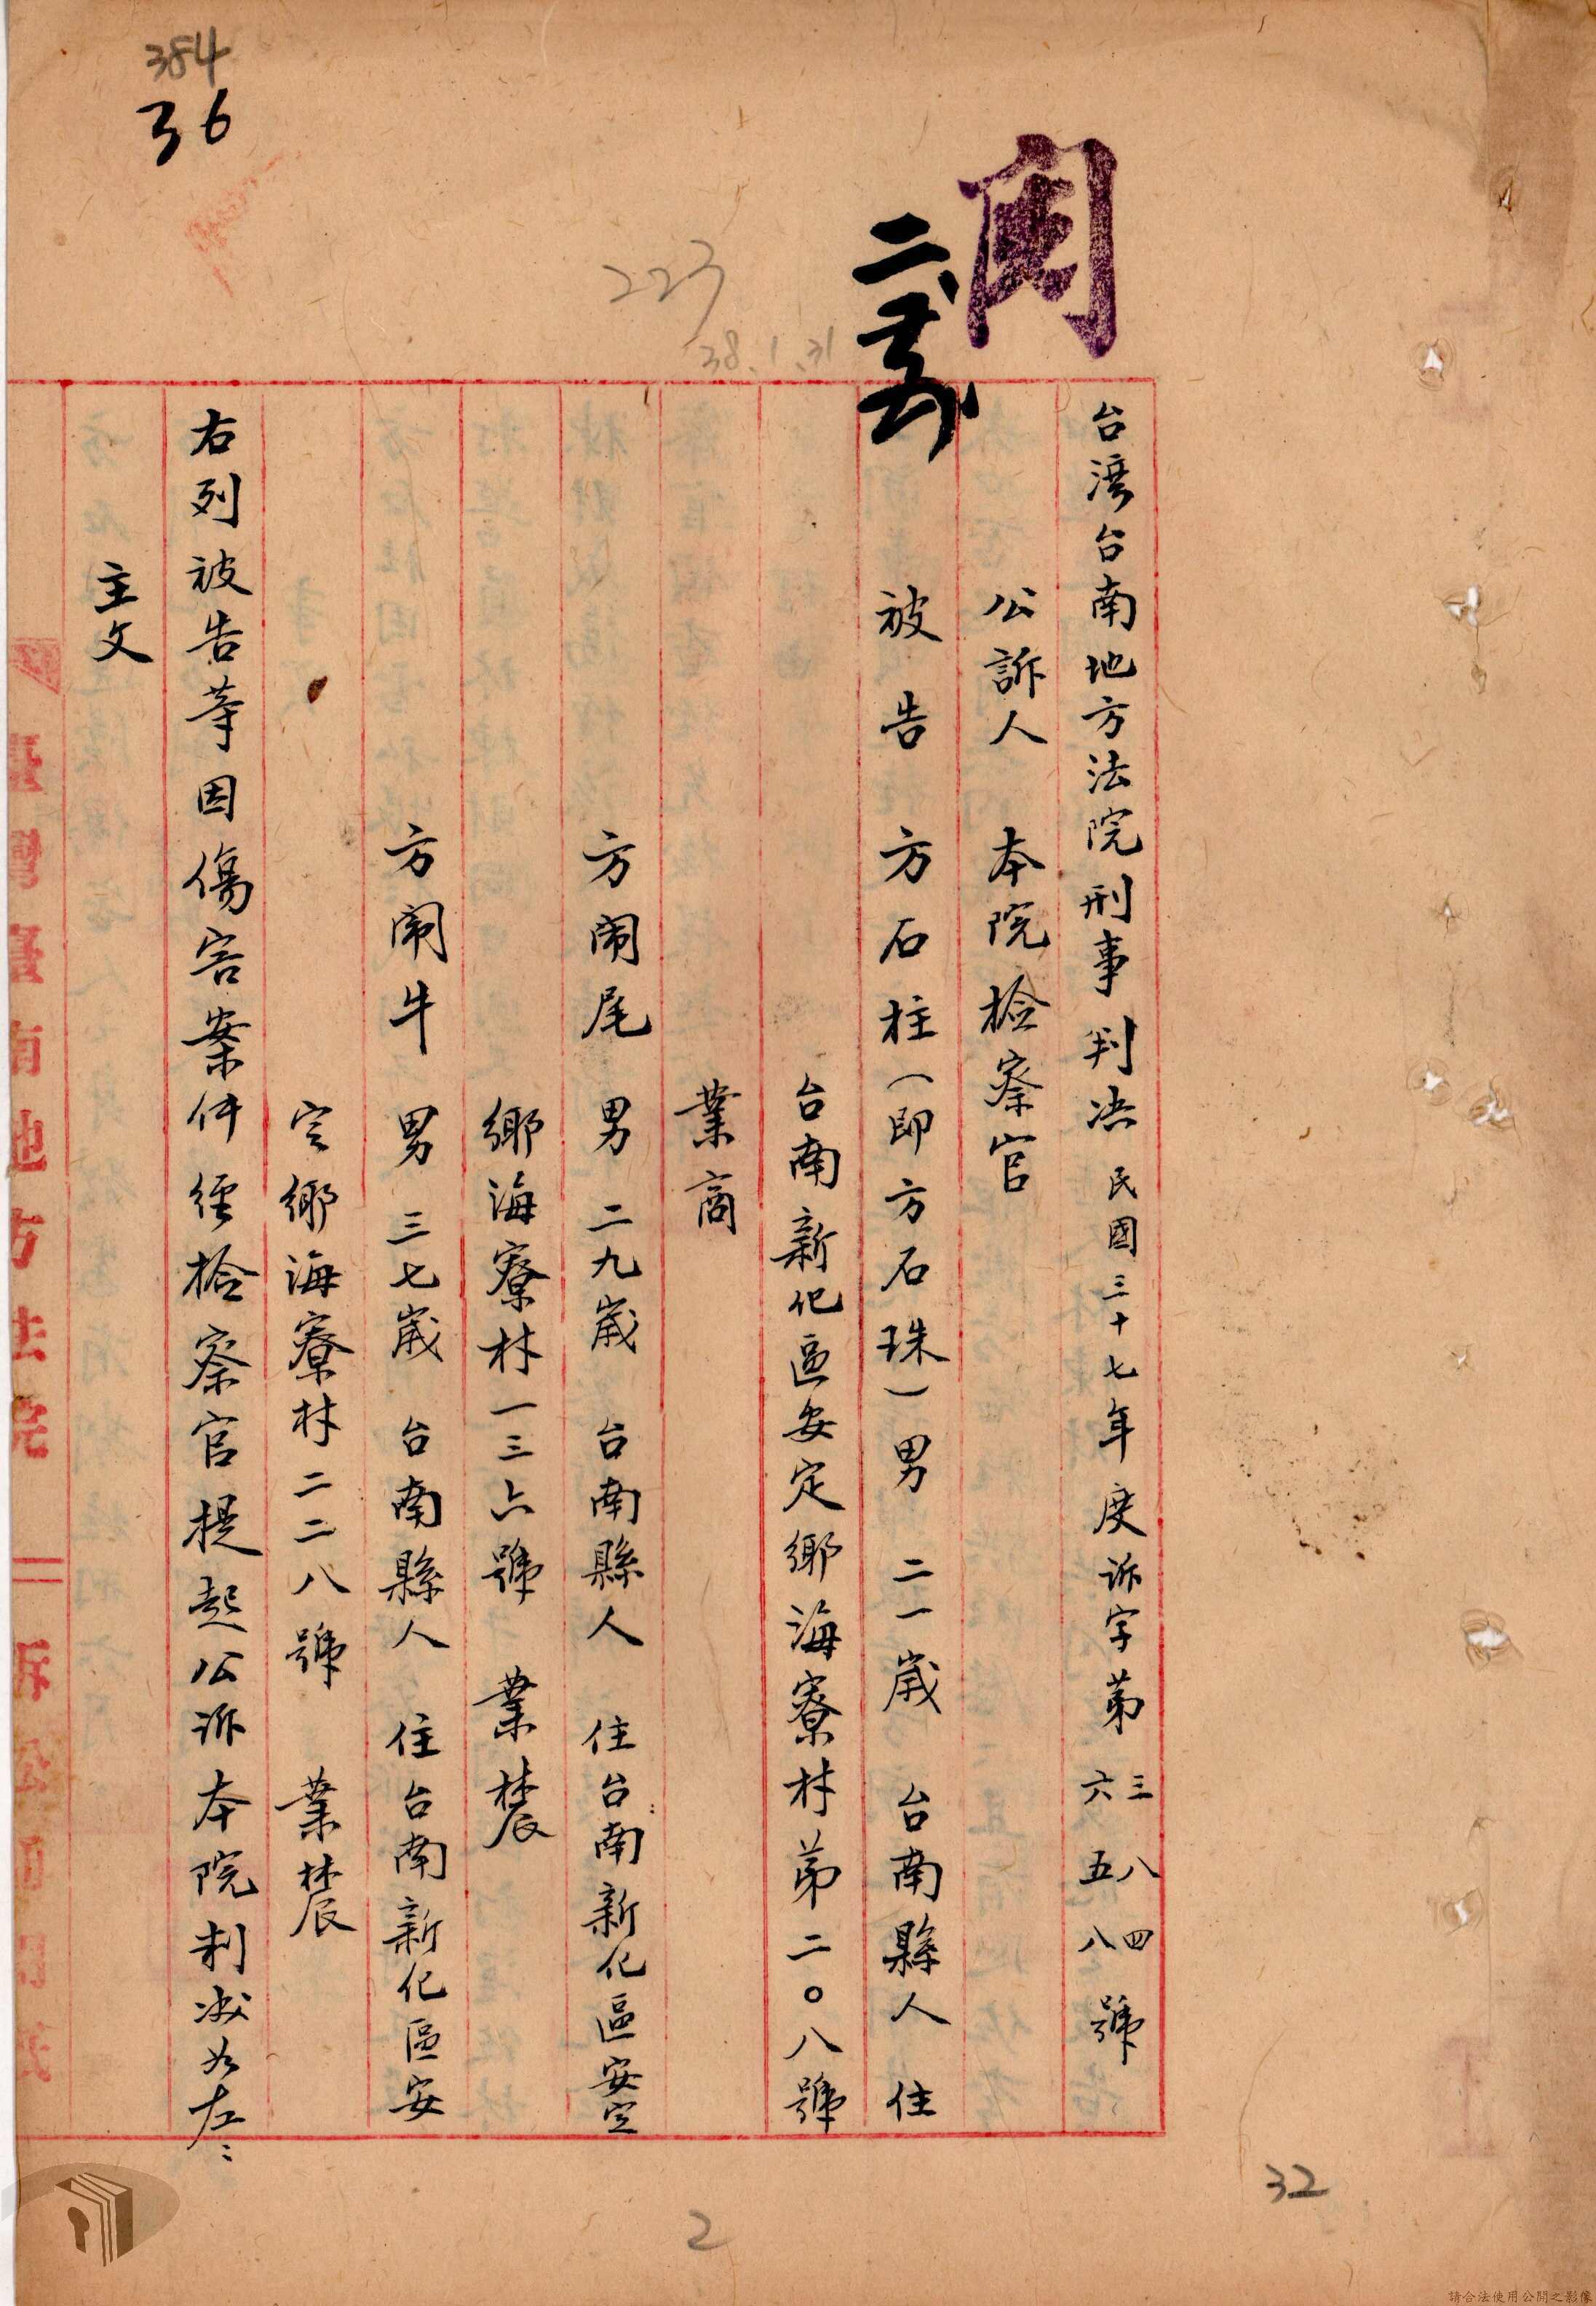 384
36
223
38.1.31
台湾台南地方法院刑事判决 民國三十七年度訴字第三八四六五八號
公訴人 本院檢察官
被告 方石柱(即方石珠)男 二一歲 台南縣人 住
台南新化區安定鄉海寮村第二〇八號
業商
方闹尾 男 二九歲 台南縣人 住台南新化區安定
鄉海寮村一三六號 業農
方闹牛 男 三七歲 台南縣人 住台南新化區安
定鄉海寮村二二八號 業農
右列被告等因傷害案件經檢察官提起公訴本院判决如左:
主文
臺灣臺南地方法院
32
2
請合法使用公開之影像